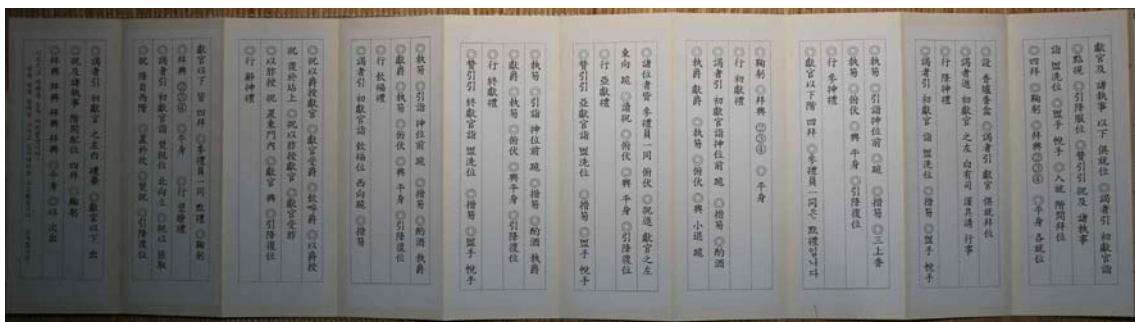 獻官及 諸執事 以下 俱就位 ◎謁者引 初獻官詣
◎點視 ◎引降復位 ◎贊引引 祝及 諸執事
詣 盥洗位 ◎盥手 帨手 ◎入就 階間拜位
◎四拜 ◎鞠躬 ◎拜興②③④ ◎平身 各就位
◎設 香爐香盒 ◎謁者引 獻官 俱就拜位
◎謁者進 初獻官之左 白有司 謹具請 行事
◎行 降神禮
◎謁者引 初獻官 詣 盥洗位 ◎搢笏 ◎盥手 帨手
◎執笏 ◎引詣神位前 跪 ◎搢笏 ◎三上香
◎執笏 ◎俯伏 ◎興 平身 ◎引降復位
◎行 參神禮
獻官以下階 四拜 ◎參禮員一同은 默禮입니다
◎鞠躬 ◎拜興②③④ ◎平身
◎行 初獻禮
◎謁者引 初獻官詣神位前 跪 ◎搢笏 ◎酌酒
◎執爵 獻爵 ◎執笏 ◎俯伏 ◎興 小退 跪
◎諸位者皆 參禮員一同 俯伏 ◎祝進 獻官之左
東向 跪 ◎讀祝 ◎俯伏 ◎興 平身 ◎引降復位
◎行 亞獻禮
◎贊引引 亞獻官詣 盥洗位 ◎搢笏 ◎盥手 帨手
◎執笏 ◎引詣 神位前 跪 ◎搢笏 ◎酌酒 執爵
獻爵 ◎執笏 ◎俯伏 ◎興平身 ◎引降復位
◎行 終獻禮
◎贊引引 終獻官詣 盥洗位 ◎搢笏 ◎盥手 帨手
◎執笏 ◎引詣 神位前 跪 ◎搢笏 ◎酌酒 執爵
◎獻爵 ◎執笏 ◎俯伏 ◎興 平身 ◎引降復位
◎行 飮福禮
◎謁者引 初獻官詣 飮福位 西向跪 ◎搢笏
◎祝以爵授獻官 ◎獻官受爵 ◎飮啐爵 ◎以爵授
祝 復於坫上 ◎祝以胙授獻官 ◎獻官受胙
◎以胙授 祝 置東門內 ◎獻官 興 ◎引降復位
◎行 辭神禮
獻官以下 皆 四拜 ◎參禮員一同 默禮 ◎鞠躬
◎拜興 ②③④ ◎平身 ◎行 望燎禮
◎謁者引 初獻官詣 焚祝位 北向立 ◎祝以 篚取
◎祝 降自西階 ◎置於坎 ◎焚祝 ◎引降復位
◎謁者引 初獻官 之左白 禮畢 ◎獻官以下 出
◎祝及諸執事 階間配位 四拜 ◎鞠躬
◎拜興 拜興 拜興 拜興 ◎平身 ◎以 次出